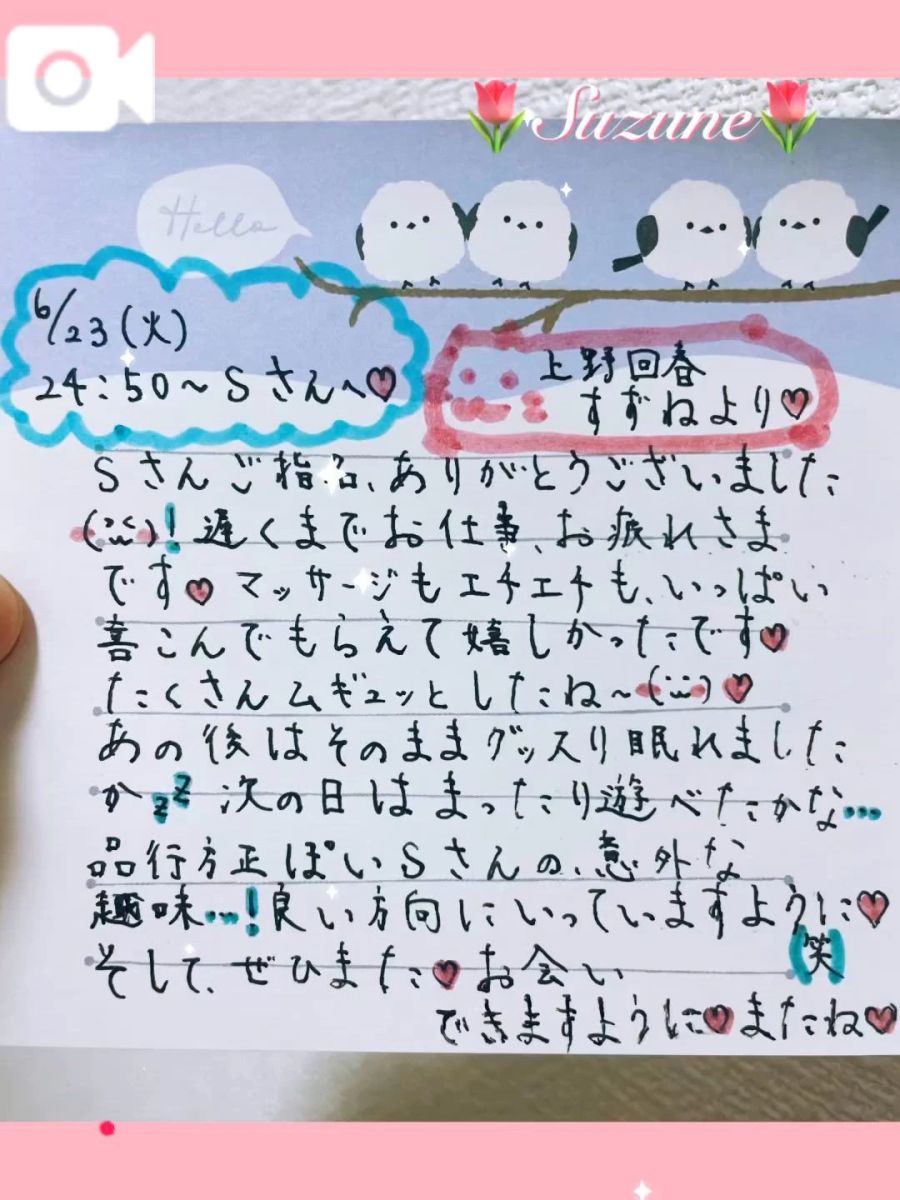 Suzune
Hello
6/23(火)
24:50～Sさんへ♥
上野回春
すずねより♥
Sさんご指名、ありがとうございました
! 遅くまでお仕事、お疲れさま
です♥ マッサージもエチエチも、いっぱい
喜こんでもらえて嬉しかったです♥
たくさんムギュッとしたね～♥
あの後はそのままグッスリ眠れました
かzZ 次の日はまったり遊べたかな…
品行方正ぽいSさんの、意外な
趣味…!良い方向にいっていますように♥
(笑)
そして、ぜひまた♥お会い
できますように♥またね♥